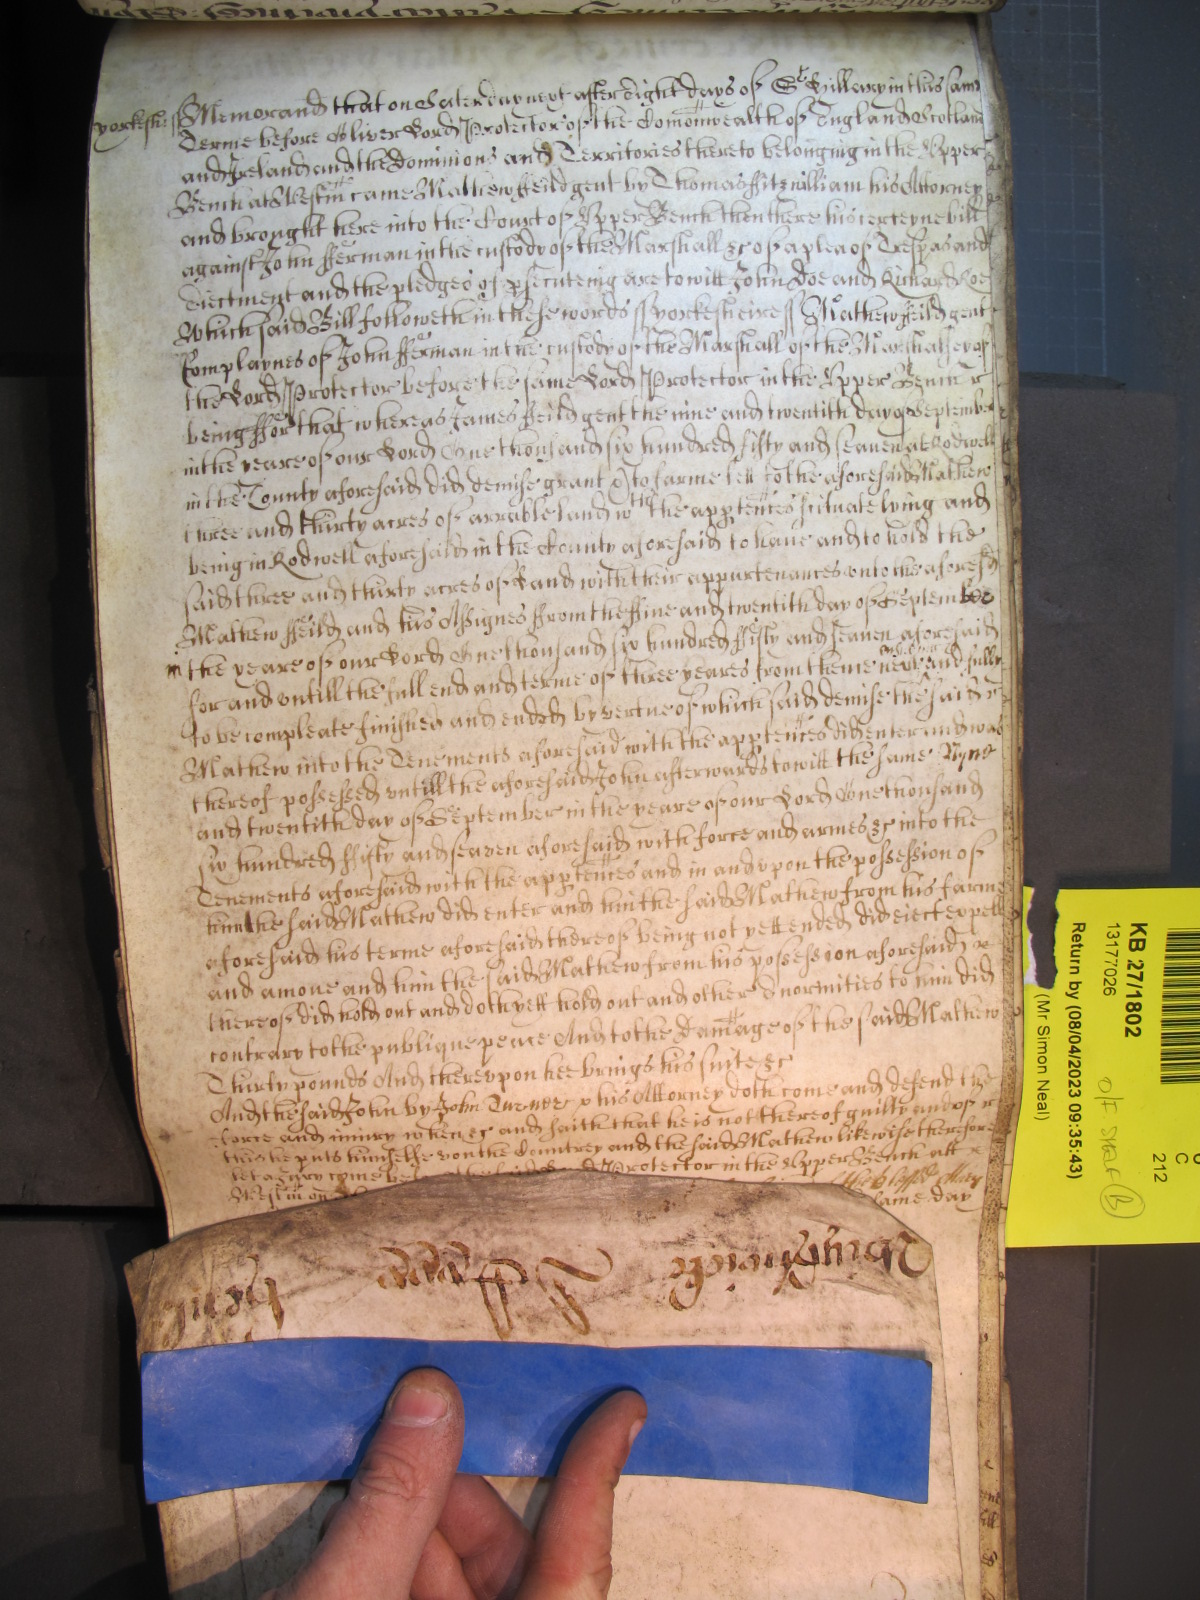 yorkeshire ss Memorand that on Saterday next after eight dayes of St Hillary in this same
Terme before Oliver Lord Protector of the Comonwealth of England Scotland
and Ireland and the Dominions and Territories thereto belonging in the Upper
Bench at Westm came Mathew Feild gent by Thomas Fitzwilliam his Attorney
and brought here into the Court of Upper Bench then there his certeyne bill
against John Ferman in the custody of the Marshall &c of a plea of Trespas and
Eiectment and the pledges of psecuteing are to witt John Doe and Richard Roe
Which said Bill followeth in these words ss yorkesheire ss Mathew Feild gent
Complaynes of John Ferman in the custody of the Marshall of the Marshalsey of
the Lord Protector before the same Lord Protector in the Upper Bench
being For that whereas James Feild gent the nine and twentith day of September
in the yeare of our Lord One thousand six hundred fifty and seaven at Rodwell
in the County aforesaid did demise grant & to farme lett to the aforesaid Mathew
three and thirty acres of arrable land wth the apptences scituate lying and
being in Rodwell aforesaid in the County aforesaid to have and to hold the
said three and thirty acres of Land with their appurtenances unto the aforesd
Mathew Feild and his Assignes from the Nine and twentith day of September
in the yeare of our Lord One thousand six hundred fifty and seaven aforesaid
for and untill the full end and terme of three yeares from thence next and fully
to be compleate finished and ended by vertue of which said demise the said
Mathew into the Tenements aforesaid with the apptences did enter and was
thereof possessed untill the aforesaid John afterwards to witt the same Nyne
and twentith day of September in the yeare of our Lord One thousand
six hundred fifty and seaven aforesaid with force and armes &c into the
Tenements aforesaid with the apptences and in and upon the possession of
him the said Mathew did enter and him the said Mathew from his farme
aforesaid his terme aforesaid thereof being not yett ended did eiect expell
and amove and him the said Mathew from his possession aforesaid
thereof did hold out and doth yett hold out and other Enormities to him did
contrary to the publique peace And to the damage of the said Mathew
Thirty pounds And thereupon hee brings his suite &c
And the said John by John Turner his Attorney doth come and defend the
force and iniury when &c and saith that he is not thereof guilty and of
this he puts himselfe upon the Countrey and the said Mathew likewise therefore
let a Jury come before the Lord Protector in the Upper Bench att
Westm on the blessed Mary
same day
KB 27/1802
13177026
Return by (08/04/2023 09:35:43)
(Mr Simon Neal)
O/S STAFF (B)
C
212